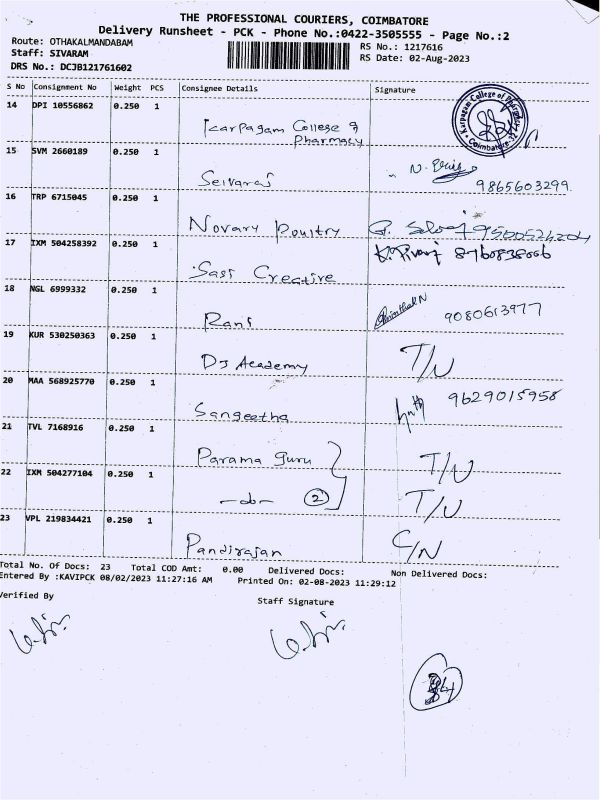 THE PROFESSIONAL COURIERS, COIMBATORE
Delivery Runsheet - PCK - Phone No.:0422-3505555 - Page No.:2
Route: OTHAKALMANDABAM
RS No.: 1217616
Staff: SIVARAM
RS Date: 02-Aug-2023
DRS No.: DCJB121761602
S No Consignment No Weight PCS Consignee Details Signature
14 DPI 10556862 0.250 1
Karpagam College of Pharmacy
Coimbatore-32
Karpagam College of
Pharmacy
15 SVM 2660189 0.250 1
Selvaraj
9865603299
16 TRP 6715045 0.250 1
Novary Poultry
17 IXM 504258392 0.250 1
8760838006
Sasi Creative
18 NGL 6999332 0.250 1
Rani 9080613977
19 KUR 530250363 0.250 1
DJ Academy T/N
20 MAA 568925770 0.250 1
Sangeetha 9629015958
21 TVL 7168916 0.250 1
Parama Guru T/N
22 IXM 504277104 0.250 1
-do- 2 T/N
23 VPL 219834421 0.250 1
Pandirajan C/N
Total No. Of Docs: 23 Total COD Amt: 0.00 Delivered Docs: Non Delivered Docs:
Entered By :KAVIPCK 08/02/2023 11:27:16 AM Printed On: 02-08-2023 11:29:12
Verified By
Staff Signature